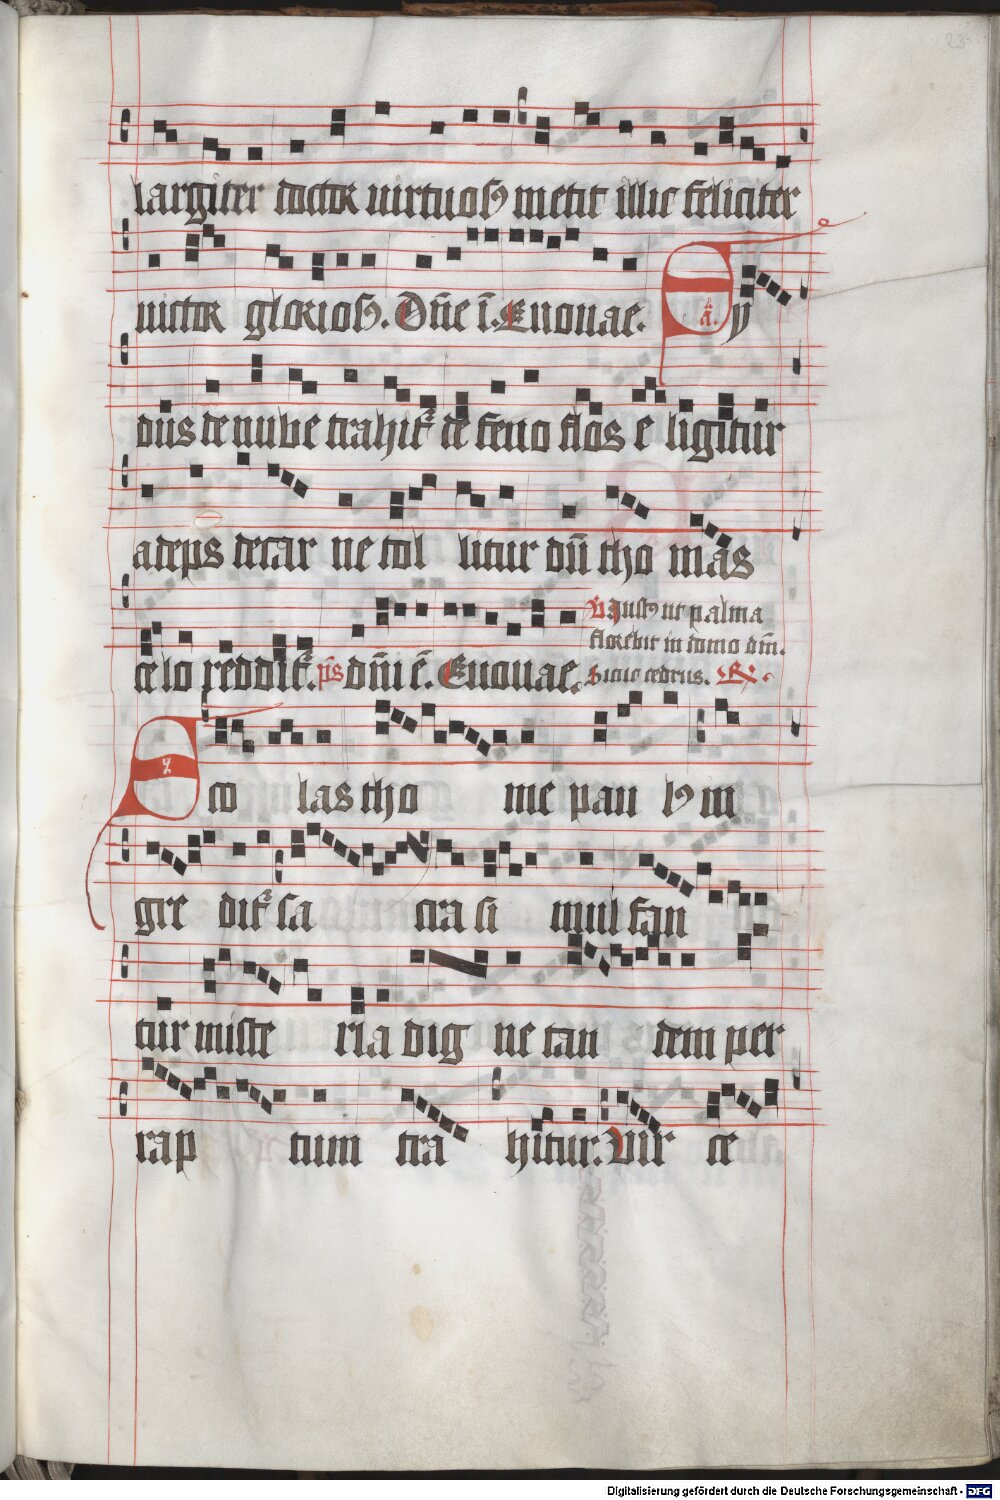 23
largiter doctor uirtuosꝰ metit illic feliciter
uictor gloriosꝰ. Dn̄e ī. Euouae. A. Sy
dus de nube trahit᷑ de feno flos e ligitur
adeps de car ne tol litur dūi tho mas
ce lo reddit᷑. p̄s dn̄i ē. Euouae.
V̄ Justꝰ ut palma
florebit in domo dn̄i.
Sicut cedrus. R.
Sco las tho me pau lꝰ in
gre dit᷑ sa cra si mul fan
tur miste ria dig ne tan dem per
rap tum tra hitur. Vir ce
Digitalisierung gefördert durch die Deutsche Forschungsgemeinschaft - DFG